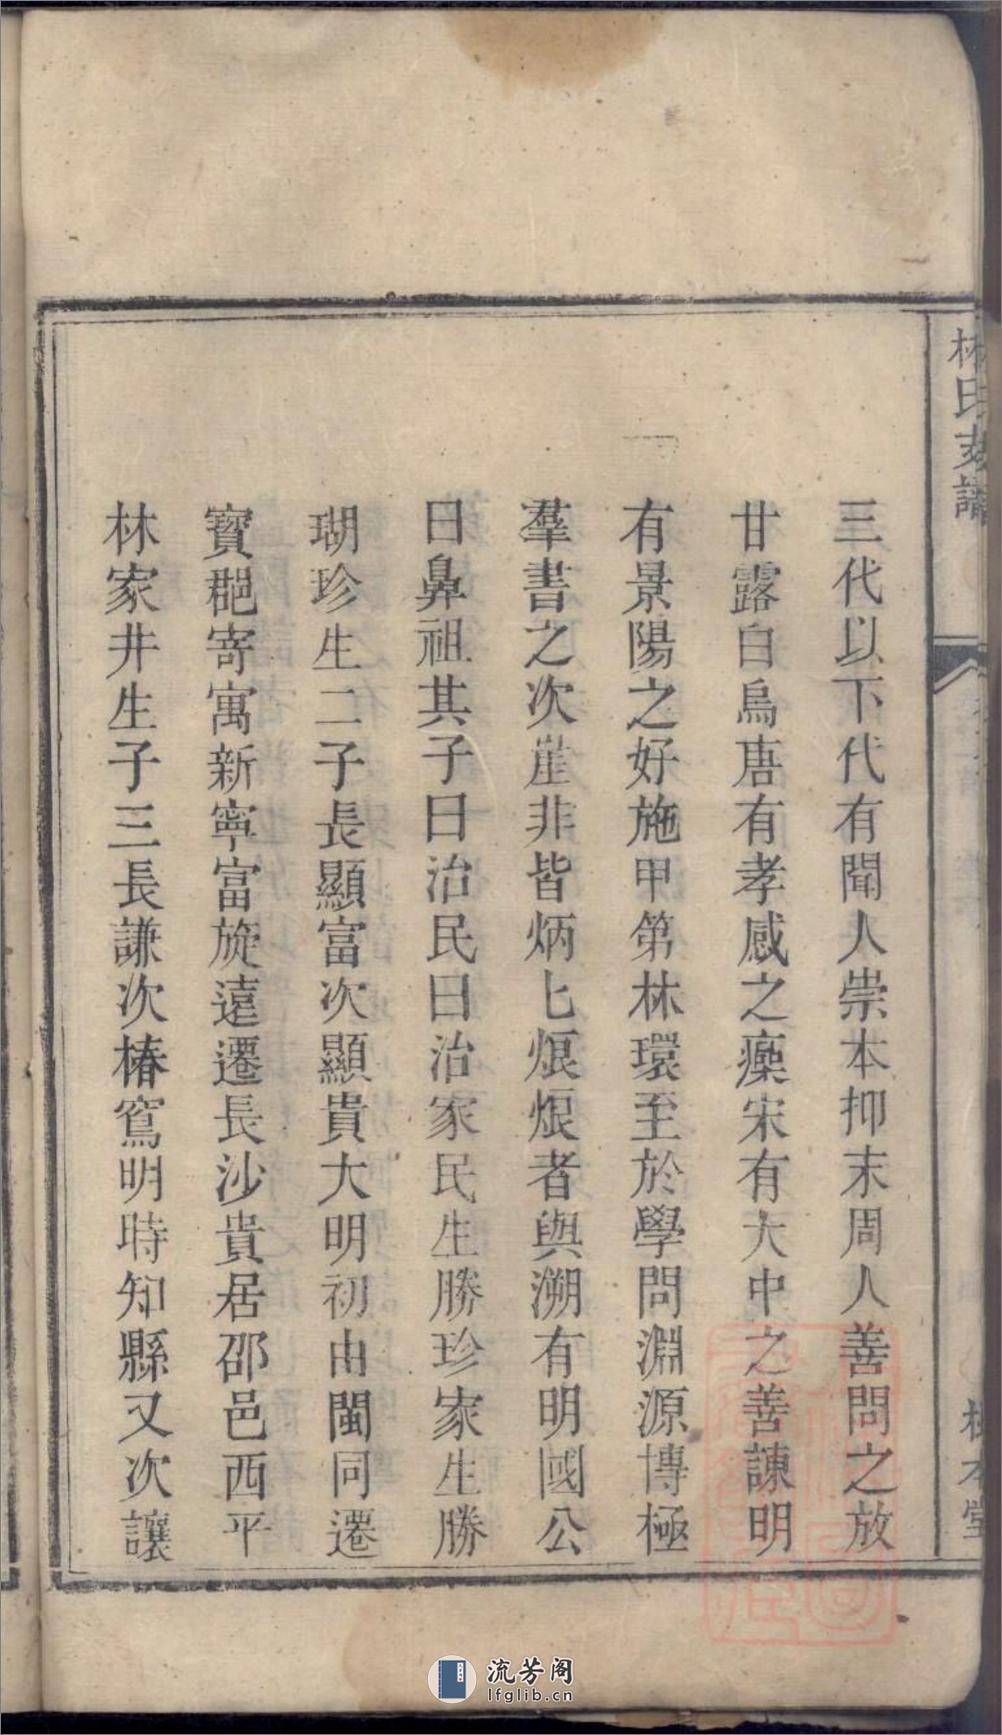 三代以下代有聞人崇本抑末周人善問之放
甘露白烏唐有孝感之㾗宋有大中之善諫明
有景陽之好施甲第林環至於學問淵源博極
羣書之次崖非皆炳匕烺烺者與溯有明國公
曰鼻祖其子曰治民曰治家民生勝珍家生勝
瑚珍生二子長顯富次顯貴大明初由閩同遷
寳郡寄寓新寧富旋遠遷長沙貴居邵邑西平
林家井生子三長謙次椿窵明時知縣又次讓
林氏支譜
本堂
流芳阁
lfglib.cn